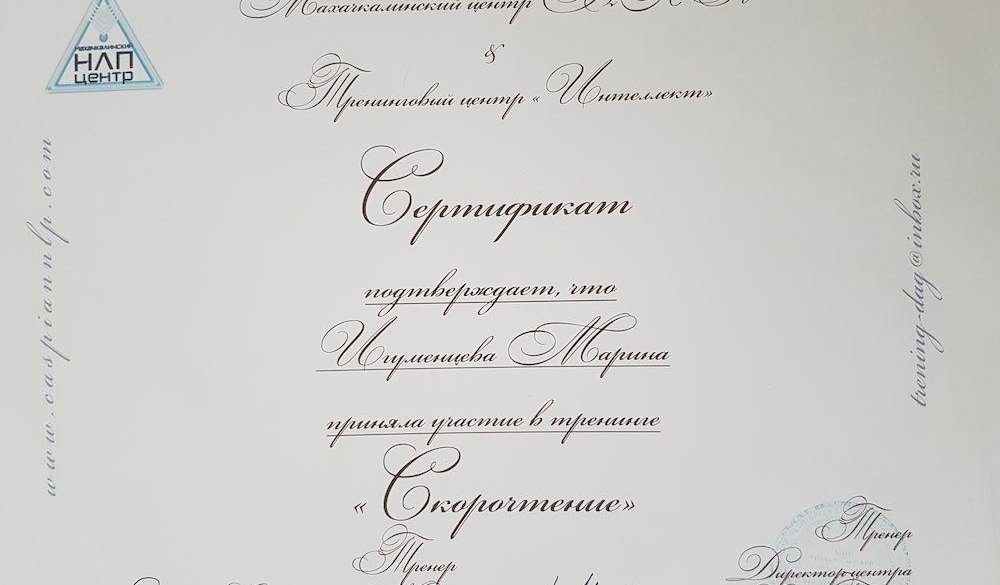 Махачкалинский центр НЛП
МАХАЧКАЛИНСКИЙ
НЛП
ЦЕНТР
&
Тренинговый центр «Интеллект»
www.caspiannlp.com
trening-dag@inbox.ru
Сертификат
подтверждает, что
Игуменцева Марина
приняла участие в тренинге
«Скорочтение»
Тренер
Тренер
Директор центра